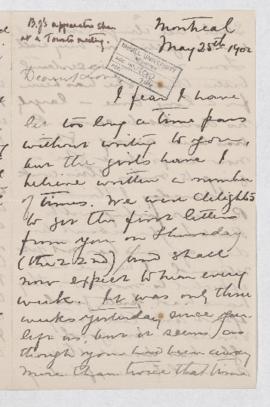 B.J.'s apparatus shown
at a Toronto meeting.
Montreal
May 25th 1902
McGILL UNIVERSITY
I fear I have
let too long a time pass
without writing to you,
but the girls have I
believe written a number
of times. We were delighted
to get the first letters
from you on Thursday
(the 22nd) and shall
now expect to hear every
week. It was only three
weeks yesterday since you
left us, but it seems as
though you had been away
more than twice that time